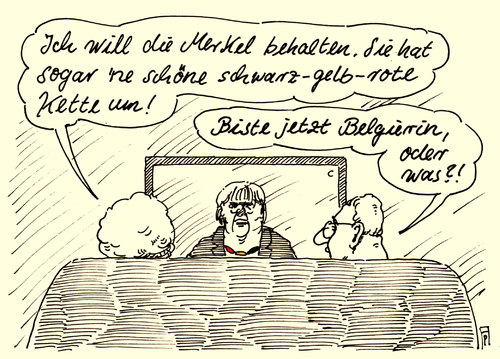 Ich will die Merkel behalten. Sie hat
sogar 'ne schöne schwarz-gelb-rote
Kette um!
Biste jetzt Belgierin,
oder
was?!
C